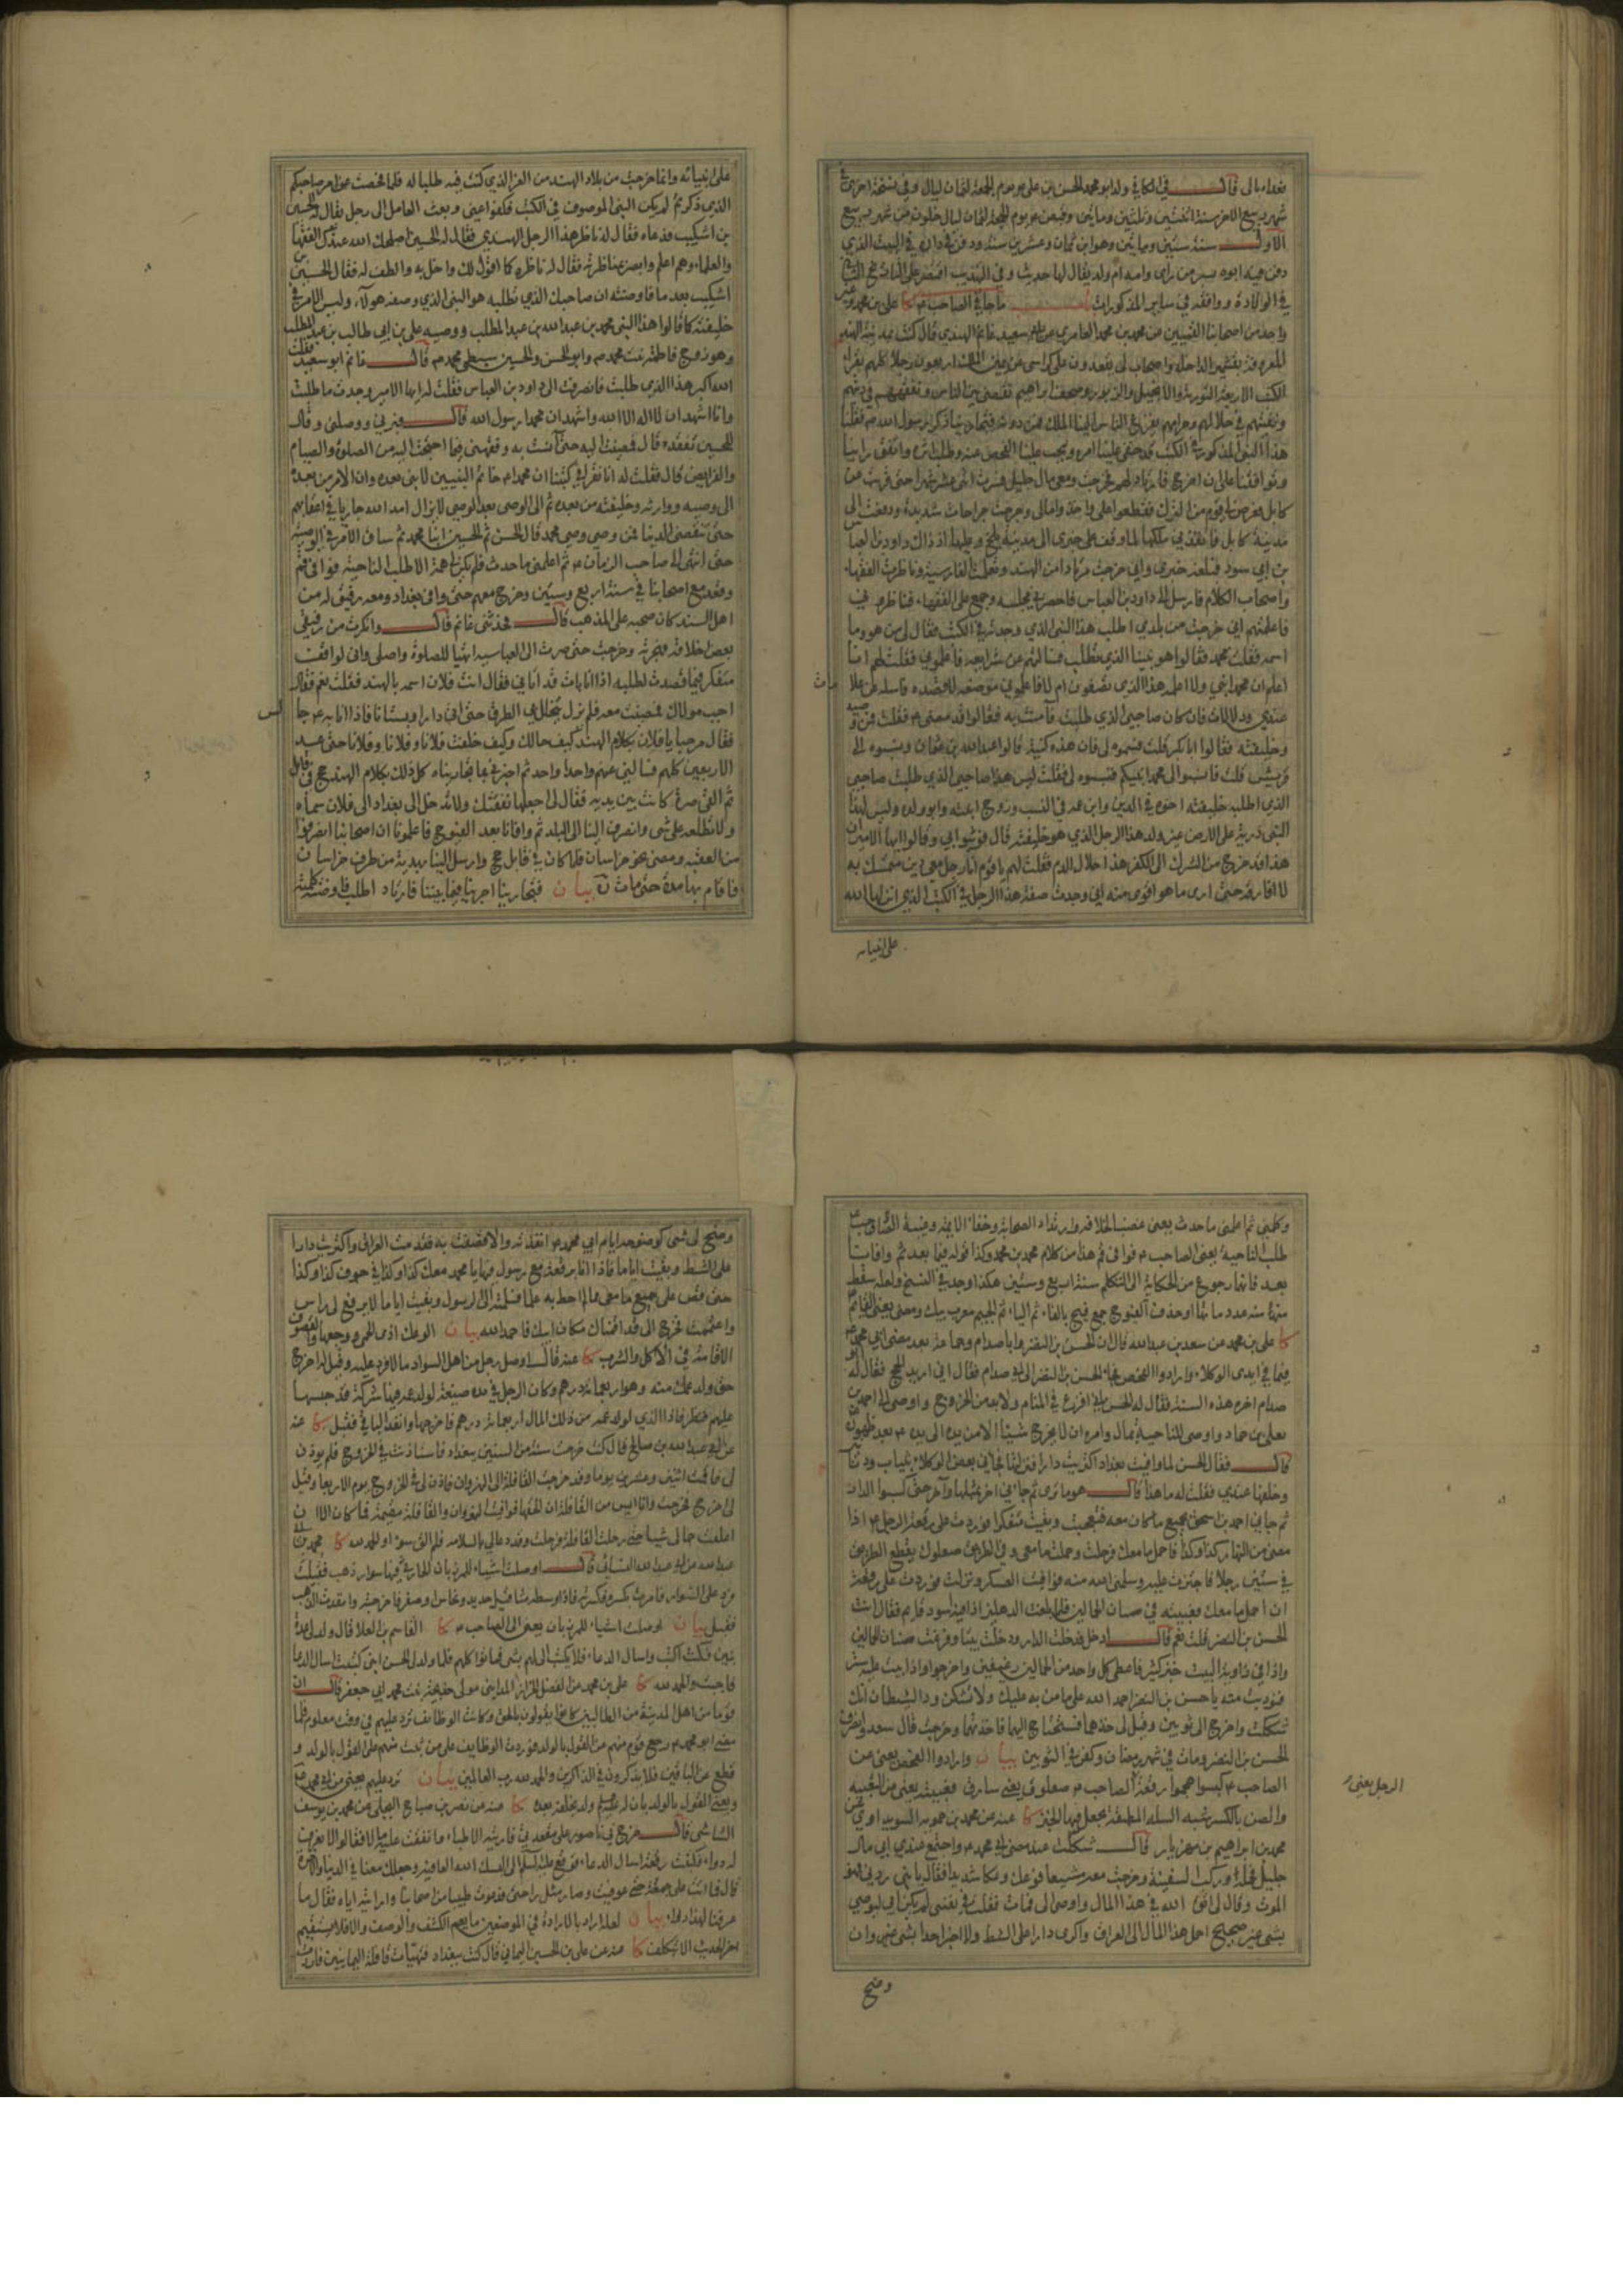 شهر ربيع الاخر سنة اثنتين وثلثين ومايتين وقبض ع يوم الجمعة لثمان ليال خلون من شهر ربيع
الاول سنة ستين ومايتين وهو ابن ثمان وعشرين سنة ودفن في داره في البيت الذي
دفن فيه ابوه بسر من راى وامه ام ولد يقال لها حديث وفي التهذيب اقتصر على
في الولادة ووافقه في ساير المذكورات ما جاء في الصاحب ع كا علي بن محمد وعن
واحد من اصحابنا القميين عن محمد بن محمد العامري عن ابي سعيد غانم الهندي قال كنت بمدينة الهند
المعروفة بقشمير الداخلة واصحاب لي يقعدون على كراسي عن يمين الملك اربعون رجلا كلهم يقرا
الكتب الاربعة التورية والانجيل والزبور وصحف ابراهيم نقضي بين الناس ونفقههم في دينهم
ونفتيهم في حلالهم وحرامهم يفزع الناس الينا الملك فمن دونه فتجارينا ذكر رسول الله ص فقلنا
هذا النبي المذكور في الكتب قد خفي علينا امره ويجب علينا الفحص عنه وطلب اثره واتفق راينا
وتوافقنا على ان اخرج فارتاد لهم فخرجت ومعي مال جليل فسرت اثنى عشر شهرا حتى قربت من
كابل فعرض لي قوم من الترك فقطعوا علي واخذوا مالي وجرحت جراحات شديدة ودفعت الى
مدينة كابل فانفذني ملكها لما وقف على خبري الى مدينة بلخ وعليها اذ ذاك داود بن العبا
بن ابي سود فبلغه خبري واني خرجت مرتادا من الهند وتعلمت الفارسية وناظرت الفقهاء
واصحاب الكلام فارسل الي داود بن العباس فاحضرني مجلسه وجمع علي الفقهاء فناظروني
فاعلمتهم اني خرجت من بلدي اطلب هذا النبي الذي وجدته في الكتب فقال لي من هو وما
اسمه فقلت محمد فقالوا هو نبينا الذي تطلب فسالتهم عن شرايعه فاعلموني فقلت لهم انا
اعلم ان محمدا نبي ولا اعلمه هذا الذي تصفون ام لا فاعلموني موضعه لاقصده فاسايله عن علا
مات
عندي ودلالات فان كان صاحبي الذي طلبت آمنت به فقالوا قد مضى ع فقلت فمن وصيه
وخليفته فقالوا ابا بكر قلت فسموه لي فان هذه كنيته قالوا عبد الله بن عثمان ونسبوه الى
قريش قلت فانسبوا الى محمدا نبيكم فنسبوه لي فقلت ليس هذا صاحبي الذي طلبت صاحبي
الذي اطلبه خليفته اخوه في الدين وابن عمه في النسب وزوج ابنته وابو ولده وليس لهذا
النبي ذرية على الارض غير ولد هذا الرجل الذي هو خليفته قال فوثبوا بي وقالوا ايها الامير ان
هذا قد خرج من الشرك الى الكفر هذا حلال الدم فقلت لهم يا قوم انا رجل معي دين متمسك به
لا افارقه حتى ارى ما هو اقوى منه اني وجدت صفة هذا الرجل في الكتب الذي انزلها الله
على انبيائه
على انبيائه وانما خرجت من بلاد الهند من العز الذي كنت فيه طلبا له فلما فحصت عن امر صاحبكم
الذي ذكرتم لم يكن النبي الموصوف في الكتب فكفوا عني وبعث العامل الى رجل يقال له الحسين
بن اشكيب فدعاه فقال له ناظر هذا الرجل الهندي فقال له الحسين اصلحك الله عندك الفقها
والعلماء وهم اعلم وابصر بمناظرته فقال له ناظره كما اقول لك واخل به والطف له فقال الحسين بن
اشكيب بعد ما فاوضته ان صاحبك الذي تطلبه هو النبي الذي وصفه هولاء وليس الامر في
خليفته كما قالوا هذا النبي محمد بن عبد الله بن عبد المطلب ووصيه علي بن ابي طالب بن عبد المطلب
وهو زوج فاطمة بنت محمد ص وابو الحسن والحسين سبطي محمد ص قال غانم ابو سعيد فقلت
الله اكبر هذا الذي طلبت فانصرفت الى داود بن العباس فقلت له ايها الامير وجدت ما طلبت
وانا اشهد ان لا اله الا الله واشهد ان محمدا رسول الله قال فبرني ووصلني وقال
للحسين تفقده قال فمضيت اليه حتى آنست به وفقهني فيما احتجت اليه من الصلوة والصيام
والفرايض قال فقلت له انا نقرا في كتبنا ان محمدا ص خاتم النبيين لا نبي بعده وان الامر من بعده
الى وصيه ووارثه وخليفته من بعده ثم الى الوصي بعد الوصي لا يزال امر الله جاريا في اعقابهم
حتى تنقضي الدنيا فمن وصي وصي محمد قال الحسن ثم الحسين ابنا محمد ثم ساق الامر في الوصية
حتى انتهى الى صاحب الزمان ع ثم اعلمني ما حدث فلم يكن لي همة الا طلب الناحية فوافى قم
وقعد مع اصحابنا في سنة اربع وستين وخرج معهم حتى وافى بغداد ومعه رفيق له من
اهل السند كان صحبه على المذهب قال فحدثني غانم قال وانكرت من رفيقي
بعض اخلاقه فهجرته وخرجت حتى صرت الى العباسية اتهيا للصلوة واصلي واني لواقف
متفكر فيما قصدت لطلبه اذا انا بات قد اتاني فقال انت فلان اسمه بالهند فقلت نعم فقال
اجب مولاك فمضيت معه فلم يزل يتخلل بي الطرق حتى اتى دارا وبستانا فاذا انا به ع جا
لس
فقال مرحبا يا فلان بكلام الهند كيف حالك وكيف خلفت فلانا وفلانا وفلانا حتى عد
الاربعين كلهم فسالني عنهم واحدا واحدا ثم اخبرني بما تجارينا كل ذلك بكلام الهند
ثم القى صرة كانت بين يديه فقال لي اجعلها نفقتك ولا تدخل الى بغداد الى فلان سماه
ولا تطلعه على شي وانصرف الينا الى البلد ثم وافانا بعد الفيوج فاعلمونا ان اصحابنا انصرفوا
من العقبة ومضى نحو خراسان فلما كان في قابل حج وارسل الينا بهدية من طرف خراسان
فاقام بها مدة حتى مات ره بيان فتجارينا اجرينا فيما بيننا فارتاد اطلب فاوضته كلمته
وكلمني ثم اعلمني ما حدث يعني غصب الخلافة وارتداد الصحابة وخفاء الايمة وغيبة الصاحب ع
طلب الناحية يعني الصاحب ع فوافى قم هذا من كلام محمد بن محمد وكذا قوله فيما بعد ثم وافانا
بعد فانها رجوع من الحكاية الى التكلم سنة اربع وستين هكذا وجد في النسخ ولعله سقط
كا علي بن محمد عن سعد بن عبد الله قال ان الحسن بن النضر وابا صدام وجماعة بعد مضي ابي محمد ع
فيما في ايدي الوكلاء وارادوا الفحص فجاء الحسن بن النضر الى ابي صدام فقال اني اريد الحج فقال له ابو
صدام اخره هذه السنة فقال له الحسن اني افزع في المنام ولا بد من الخروج واوصى الى احمد بن
يعلى بن حماد واوصى للناحية بمال وامره ان لا يخرج شيئا الا من يده الى يده ع بعد ظهوره
قال فقال الحسن لما وافيت بغداد اكتريت دارا فنزلتها فجاءني بعض الوكلاء بثياب ودنا
وخلفها عندي فقلت له ما هذا قال هو ما ترى ثم جاءني اخر بمثلها وآخر حتى كبسوا الدار
ثم جاءني احمد بن اسحق بجميع ما كان معه فتعجبت وبقيت متفكرا فوردت علي رقعة الرجل ع اذا
مضى من النهار كذا وكذا فاحمل ما معك فرحلت وحملت ما معي وفي الطريق صعلوك يقطع الطريق
في ستين رجلا فاجتزت عليه وسلمني الله منه فوافيت العسكر ونزلت فوردت علي رقعة
ان احمل ما معك فعبيته في صنان الحمالين فلما بلغت الدهليز اذا فيه اسود قايم فقال انت
الحسن بن النضر قلت نعم قال ادخل فدخلت الدار ودخلت بيتا وفرغت صنان الحمالين
واذا في زاوية البيت خبز كثير فاعطى كل واحد من الحمالين رغيفين واخرجوا واذا بيت عليه ستر
فنوديت منه يا حسن بن النضر احمد الله على ما من به عليك ولا تشكن فود الشيطان انك
شككت واخرج الي ثوبين وقيل لي خذهما فستحتاج اليهما فاخذتهما وخرجت قال سعد وانصرف
الحسن بن النضر ومات في شهر رمضان وكفن في الثوبين بيان وارادوا الفحص يعني عن
الصاحب ع كبسوا هجموا رقعة الصاحب ع صعلوك يعني سارق فعبيته يعني من التعبية
الرجل يعني
والصن بالكسر شبه السلة المطبقة يجعل فيها الخبز كا عنه عن محمد بن حمويه السويداوي عن
محمد بن ابراهيم بن مهزيار قال شككت عند مضي ابي محمد ع واجتمع عند ابي مال
جليل فحمله وركب السفينة وخرجت معه مشيعا فوعك وعكا شديدا فقال يا بني ردني فهو
الموت وقال لي اتق الله في هذا المال واوصى الي فمات فقلت في نفسي لم يكن ابي ليوصي
بشي غير صحيح احمل هذا المال الى العراق واكري دارا على الشط ولا اخبر احدا بشي وان
وضح
وضح لي شي كوضوحه ايام ابي محمد ع انفذته والا قصفت به فقدمت العراق واكتريت دارا
على الشط وبقيت اياما فاذا انا برقعة مع رسول فيها يا محمد معك كذا وكذا في جوف كذا وكذا
حتى قص علي جميع ما معي مما لم احط به علما فسلمته الى الرسول وبقيت اياما لا يرفع لي راس
واغتممت فخرج الي قد اقمناك مكان ابيك فاحمد الله بيان الوعك اذى الحمى ووجعها والقصوف
الاقامة في الاكل والشرب كا عنه قال اوصل رجل من اهل السواد مالا فرد عليه وقيل له اخرج
حق ولد عمك منه وهو اربعمائة درهم وكان الرجل في يده ضيعة لولد عمه فيها شركة قد حبسها
عليهم فنظر فاذا الذي لولد عمه من ذلك المال اربعمائة درهم فاخرجها وانفذ الباقي فقبل كا عنه
عن ابي عبد الله بن صالح قال كنت خرجت سنة من السنين ببغداد فاستاذنت في الخروج فلم يوذن
لي فاقمت اثنين وعشرين يوما وقد خرجت القافلة الى النهروان فاذن لي في الخروج يوم الاربعا وقيل
لي اخرج فخرجت وانا ايس من القافلة ان الحقها فوافيت النهروان والقافلة مقيمة فما كان الا ان
اعلفت جمالي شيئا حتى رحلت القافلة فرحلت وقد دعا لي بالسلامة فلم الق سوءا والحمد لله كا محمد بن
عبد الله النسائي قال اوصلت اشياء للمرزباني الحارثي فيها سوار ذهب فقبلت
ورد علي السوار فامرت بكسره فكسرته فاذا في وسطه مثاقيل حديد ونحاس وصفر فاخرجته وانفذت الذهب
فقبل بيان اوصلت اشياء للمرزبان يعني الى الصاحب ع كا القاسم بن العلا قال ولد لي عدة
بنين فكنت اكتب واسال الدعاء فلا يكتب الي لهم بشي فماتوا كلهم فلما ولد لي الحسن ابني كتبت اسال الدعا
فاجبت والحمد لله كا علي بن محمد عن الفضل الخزاز المدايني مولى خديجة بنت محمد ابي جعفر قال ان
قوما من اهل المدينة من الطالبيين كانوا يقولون بالحق وكانت الوظايف ترد عليهم في وقت معلوم فلما
مضى ابو محمد ع رجع قوم منهم عن القول بالولد فوردت الوظايف على من ثبت منهم على القول بالولد و
قطع عن الباقين فلا يذكرون في الذاكرين والحمد لله رب العالمين بيان ترد عليهم يعني من ابي محمد ع
ويعني القول بالولد بان له عليه السلام ولد يخلفه بعده كا عنه عن نصر بن صباح البجلي عن محمد بن يوسف
الشاشي قال خرج بي ناصور على مقعدتي فاريته الاطباء وانفقت عليه مالا فقالوا لا نعرف
له دواء فكتبت رقعة اسال الدعاء فوقع ع الي البسك الله العافية وجعلك معنا في الدنيا والاخرة
قال فما اتت علي جمعة حتى عوفيت وصار مثل راحتي فدعوت طبيبا من اصحابنا واريته اياه فقال ما
عرفنا لهذا دواء بيان
كا عنه عن علي بن الحسين اليماني قال كنت ببغداد فتهيات قافلة اليمانيين فاردت